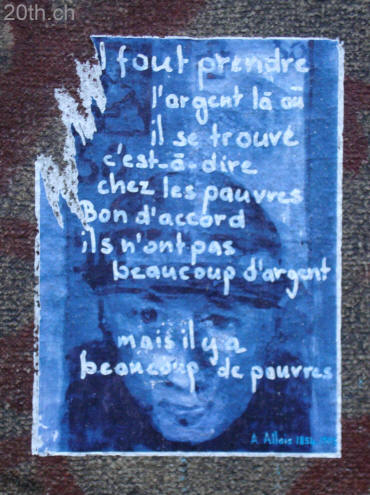 20th.ch
l fout prendre
l'argent là où
il se trouve
c'est-à-dire
chez les pauvres
Bon d'accord
ils n'ont pas
beaucoup d'argent
mais il y a
beaucoup de pauvres
A. Allais